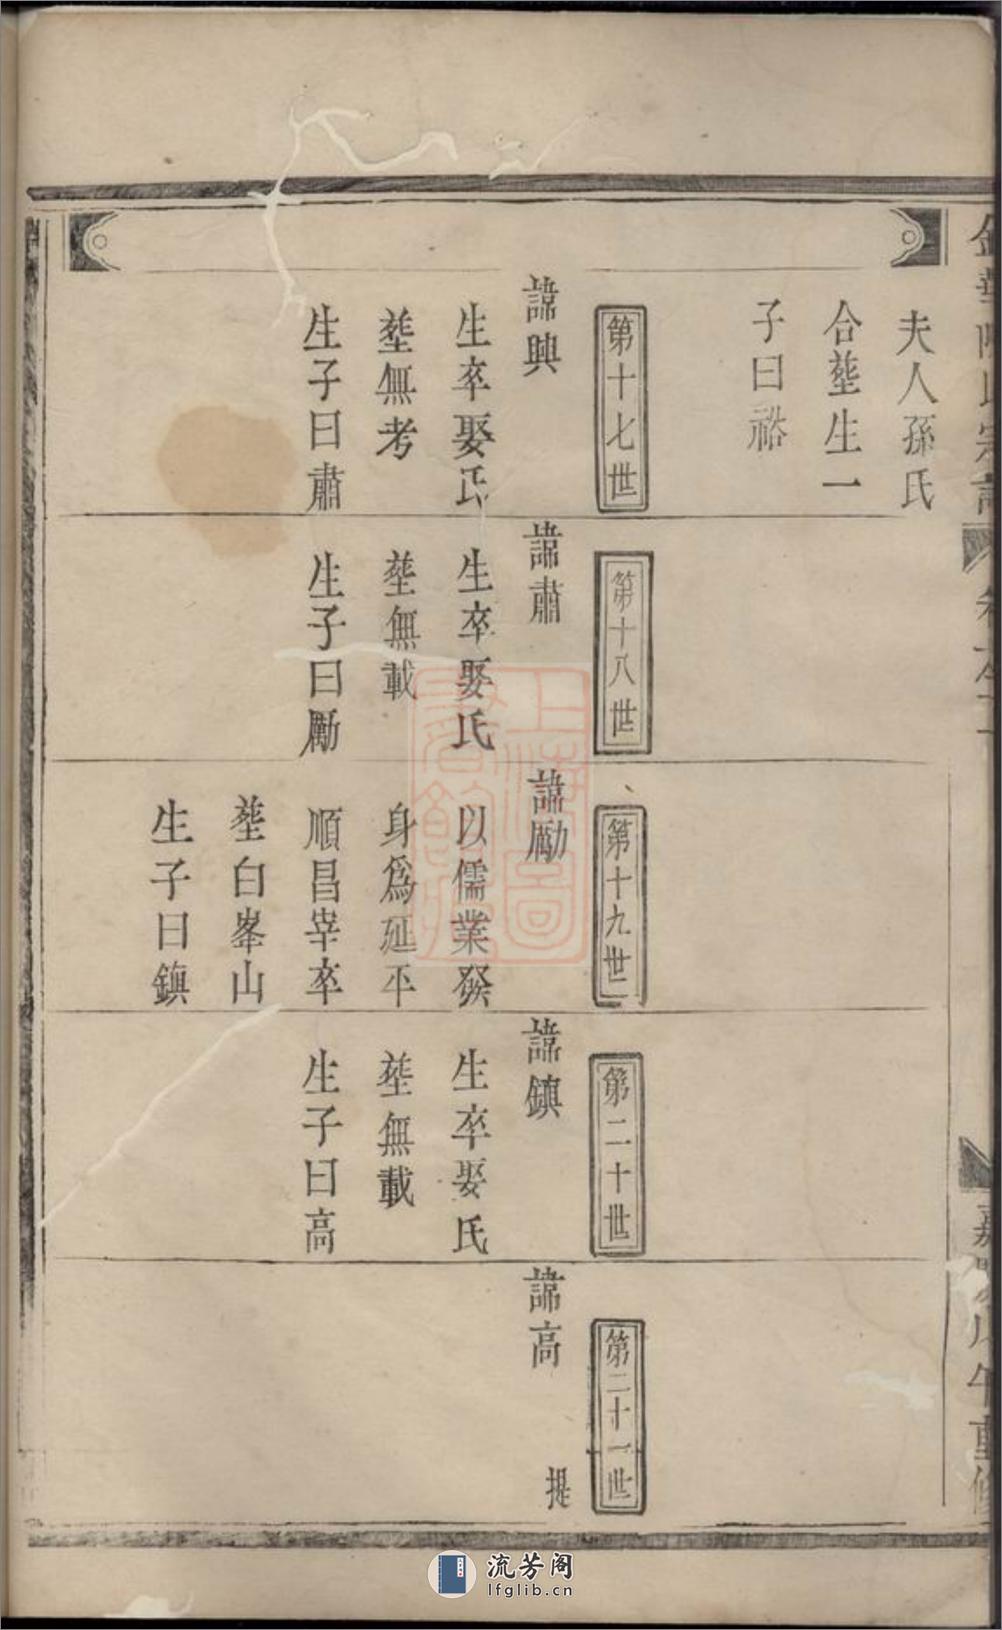 夫人孫氏
合塟生一
子曰裕
第十七世
諱興
生卒娶氏
塟無考
生子曰肅
第十八世
諱肅
生卒娶氏
塟無載
生子曰勵
第十九世
諱勵
以儒業發
身為延平
順昌宰卒
塟白峯山
生子曰鎮
第二十世
諱鎮
生卒娶氏
塟無載
生子曰高
第二十一世
諱高
提
上海圖書館藏
流芳阁
lfglib.cn